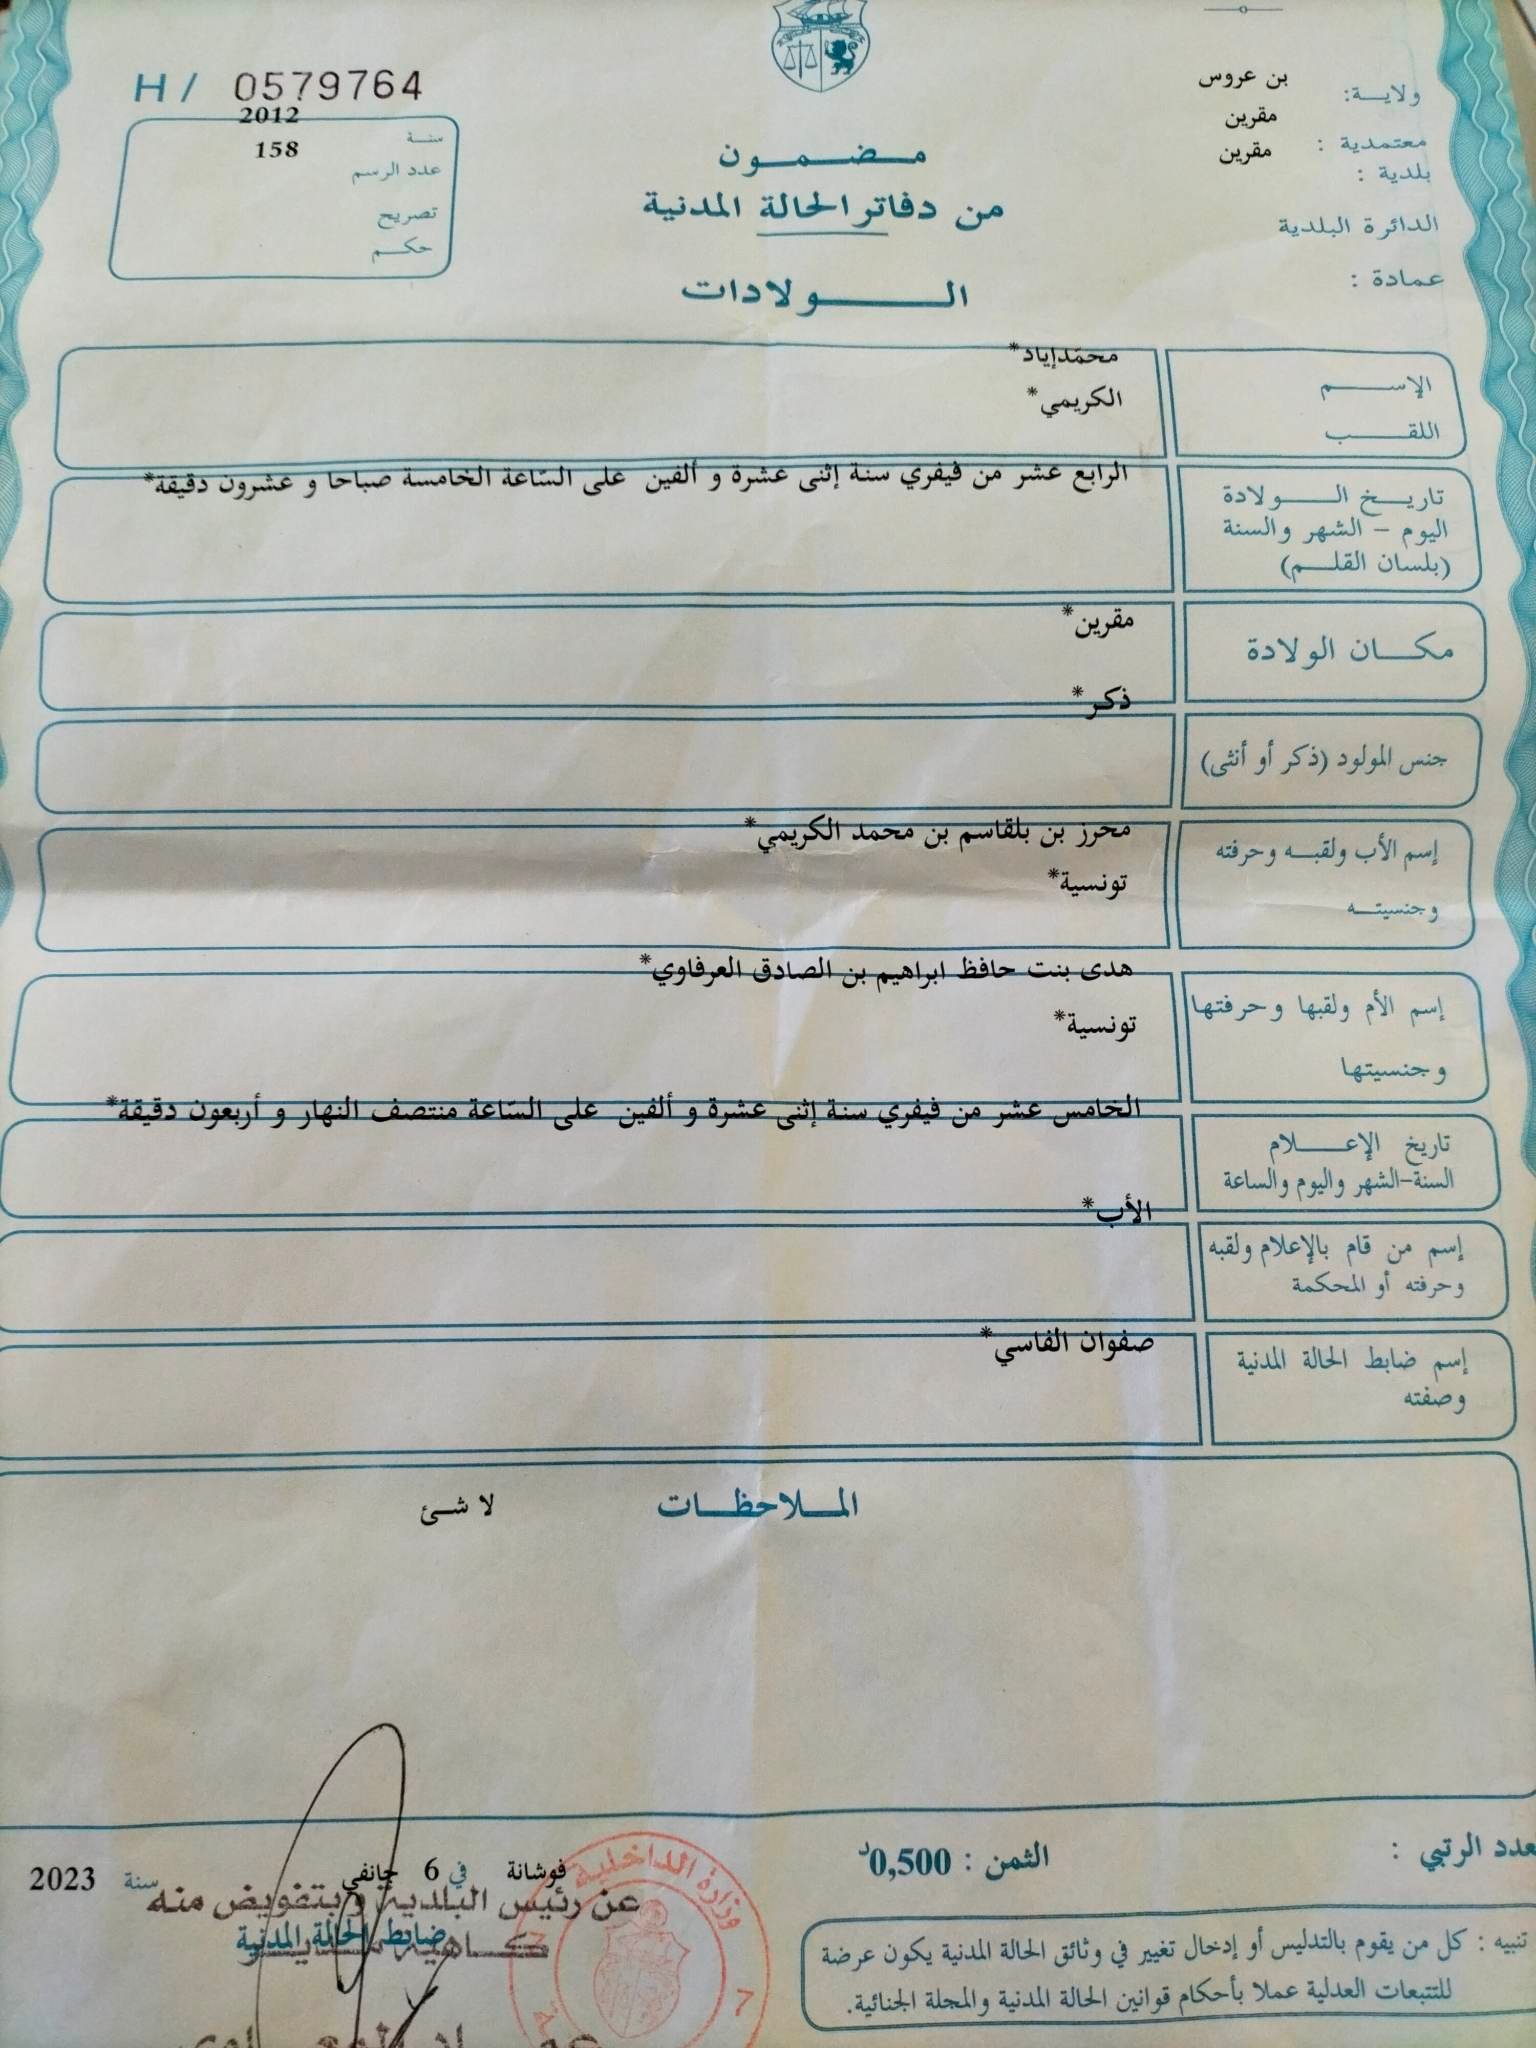 H / 0579764
سنة 2012
عدد الرسم 158
تصريح
حكم
ولاية: بن عروس
معتمدية : مقرين
بلدية : مقرين
الدائرة البلدية
عمادة :
مضمون
من دفاتر الحالة المدنية
الولادات
الإسم محمّدإياد*
اللقب الكريمي*
تاريخ الولادة
اليوم - الشهر والسنة
(بلسان القلم)
الرابع عشر من فيفري سنة إثنى عشرة و ألفين على السّاعة الخامسة صباحا و عشرون دقيقة*
مكان الولادة
مقرين*
جنس المولود (ذكر أو أنثى)
ذكر*
إسم الأب ولقبه وحرفته
وجنسيته
محرز بن بلقاسم بن محمد الكريمي*
تونسية*
إسم الأم ولقبها وحرفتها
وجنسيتها
هدى بنت حافظ ابراهيم بن الصادق العرفاوي*
تونسية*
تاريخ الإعلام
السنة-الشهر واليوم والساعة
الخامس عشر من فيفري سنة إثنى عشرة و ألفين على السّاعة منتصف النهار و أربعون دقيقة*
إسم من قام بالإعلام ولقبه
وحرفته أو المحكمة
الأب*
إسم ضابط الحالة المدنية
وصفته
صفوان الفاسي*
الملاحظات لا شئ
عدد الرتبي :
الثمن : 0,500د
فوشانة في 6 جانفي سنة 2023
عن رئيس البلدية وبتفويض منه
ضابط الحالة المدنية
وزارة الداخلية
7
تنبيه : كل من يقوم بالتدليس أو إدخال تغيير في وثائق الحالة المدنية يكون عرضة
للتتبعات العدلية عملا بأحكام قوانين الحالة المدنية والمجلة الجنائية.